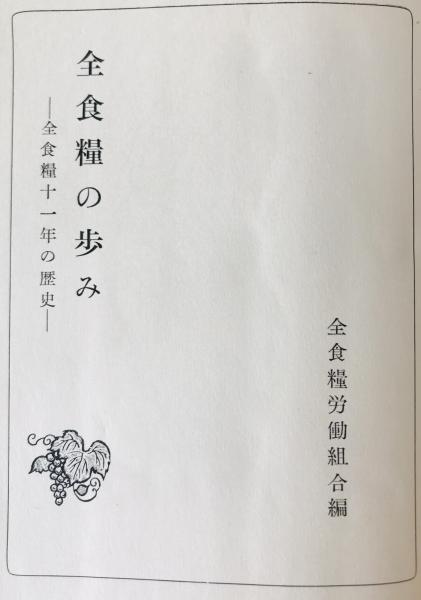 全食糧労働組合編
全食糧の歩み
―全食糧十一年の歴史―